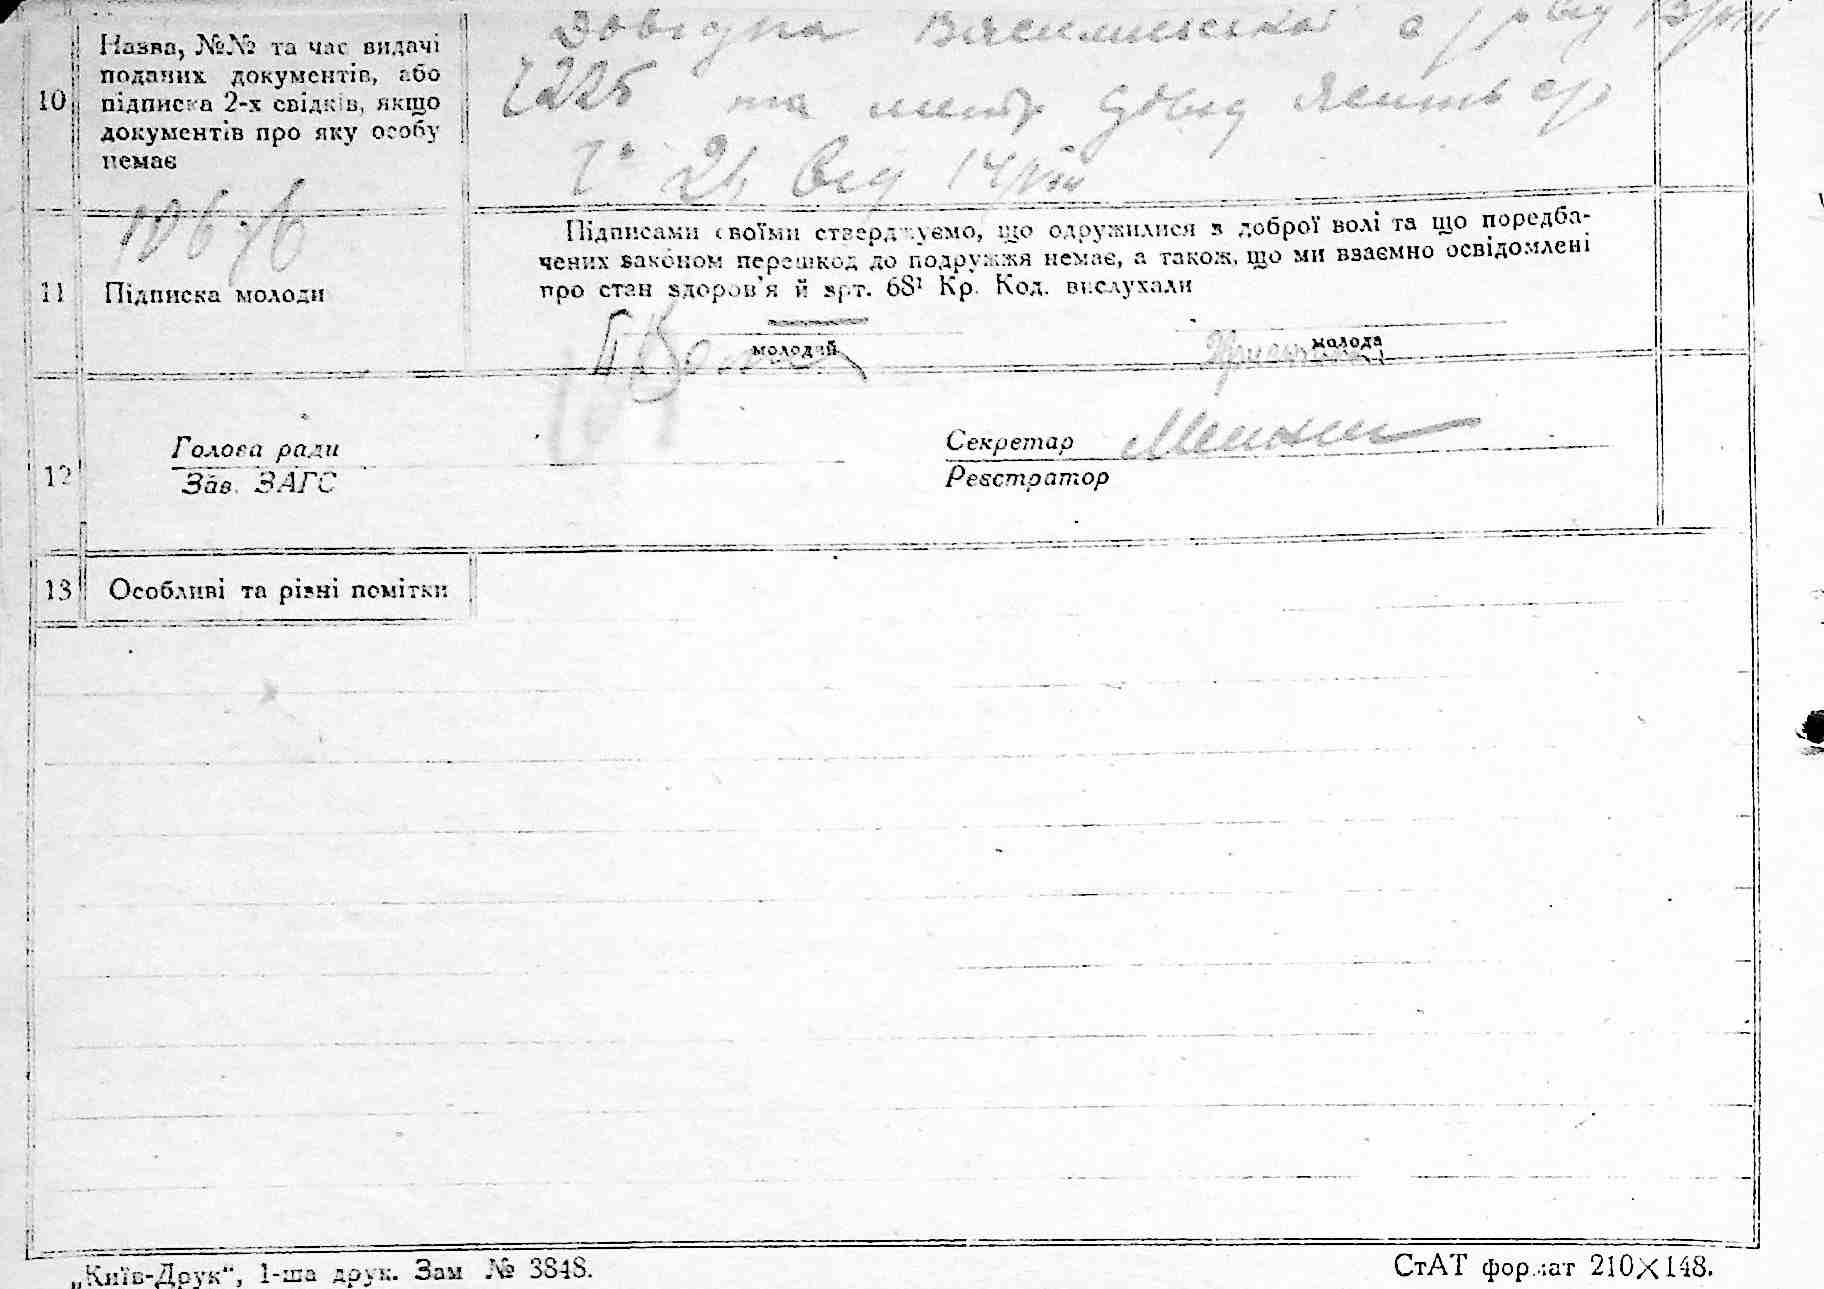 Довідка Василівської с/р від 13/VIII
Назва, №№ та час видачі
поданих документів, або
10 підписка 2-х свідків, якщо
документів про яку особу
немає
225 та
№ 21 від 14/VIII
Підписами своїми стверджуємо, що одружилися з доброї волі та що поредба-
чених законом перешкод до подружжя немає, а також, що ми взаємно освідомлені
11 Підписка молоди
про стан здоров'я й арт. 68¹ Кр. Код. вислухали
молодий молода
Голова ради Секретар
12
Зав. ЗАГС Реєстратор
13 Особливі та різні помітки
„Київ-Друк“, 1-ша друк. Зам № 3848. СтАТ формат 210×148.